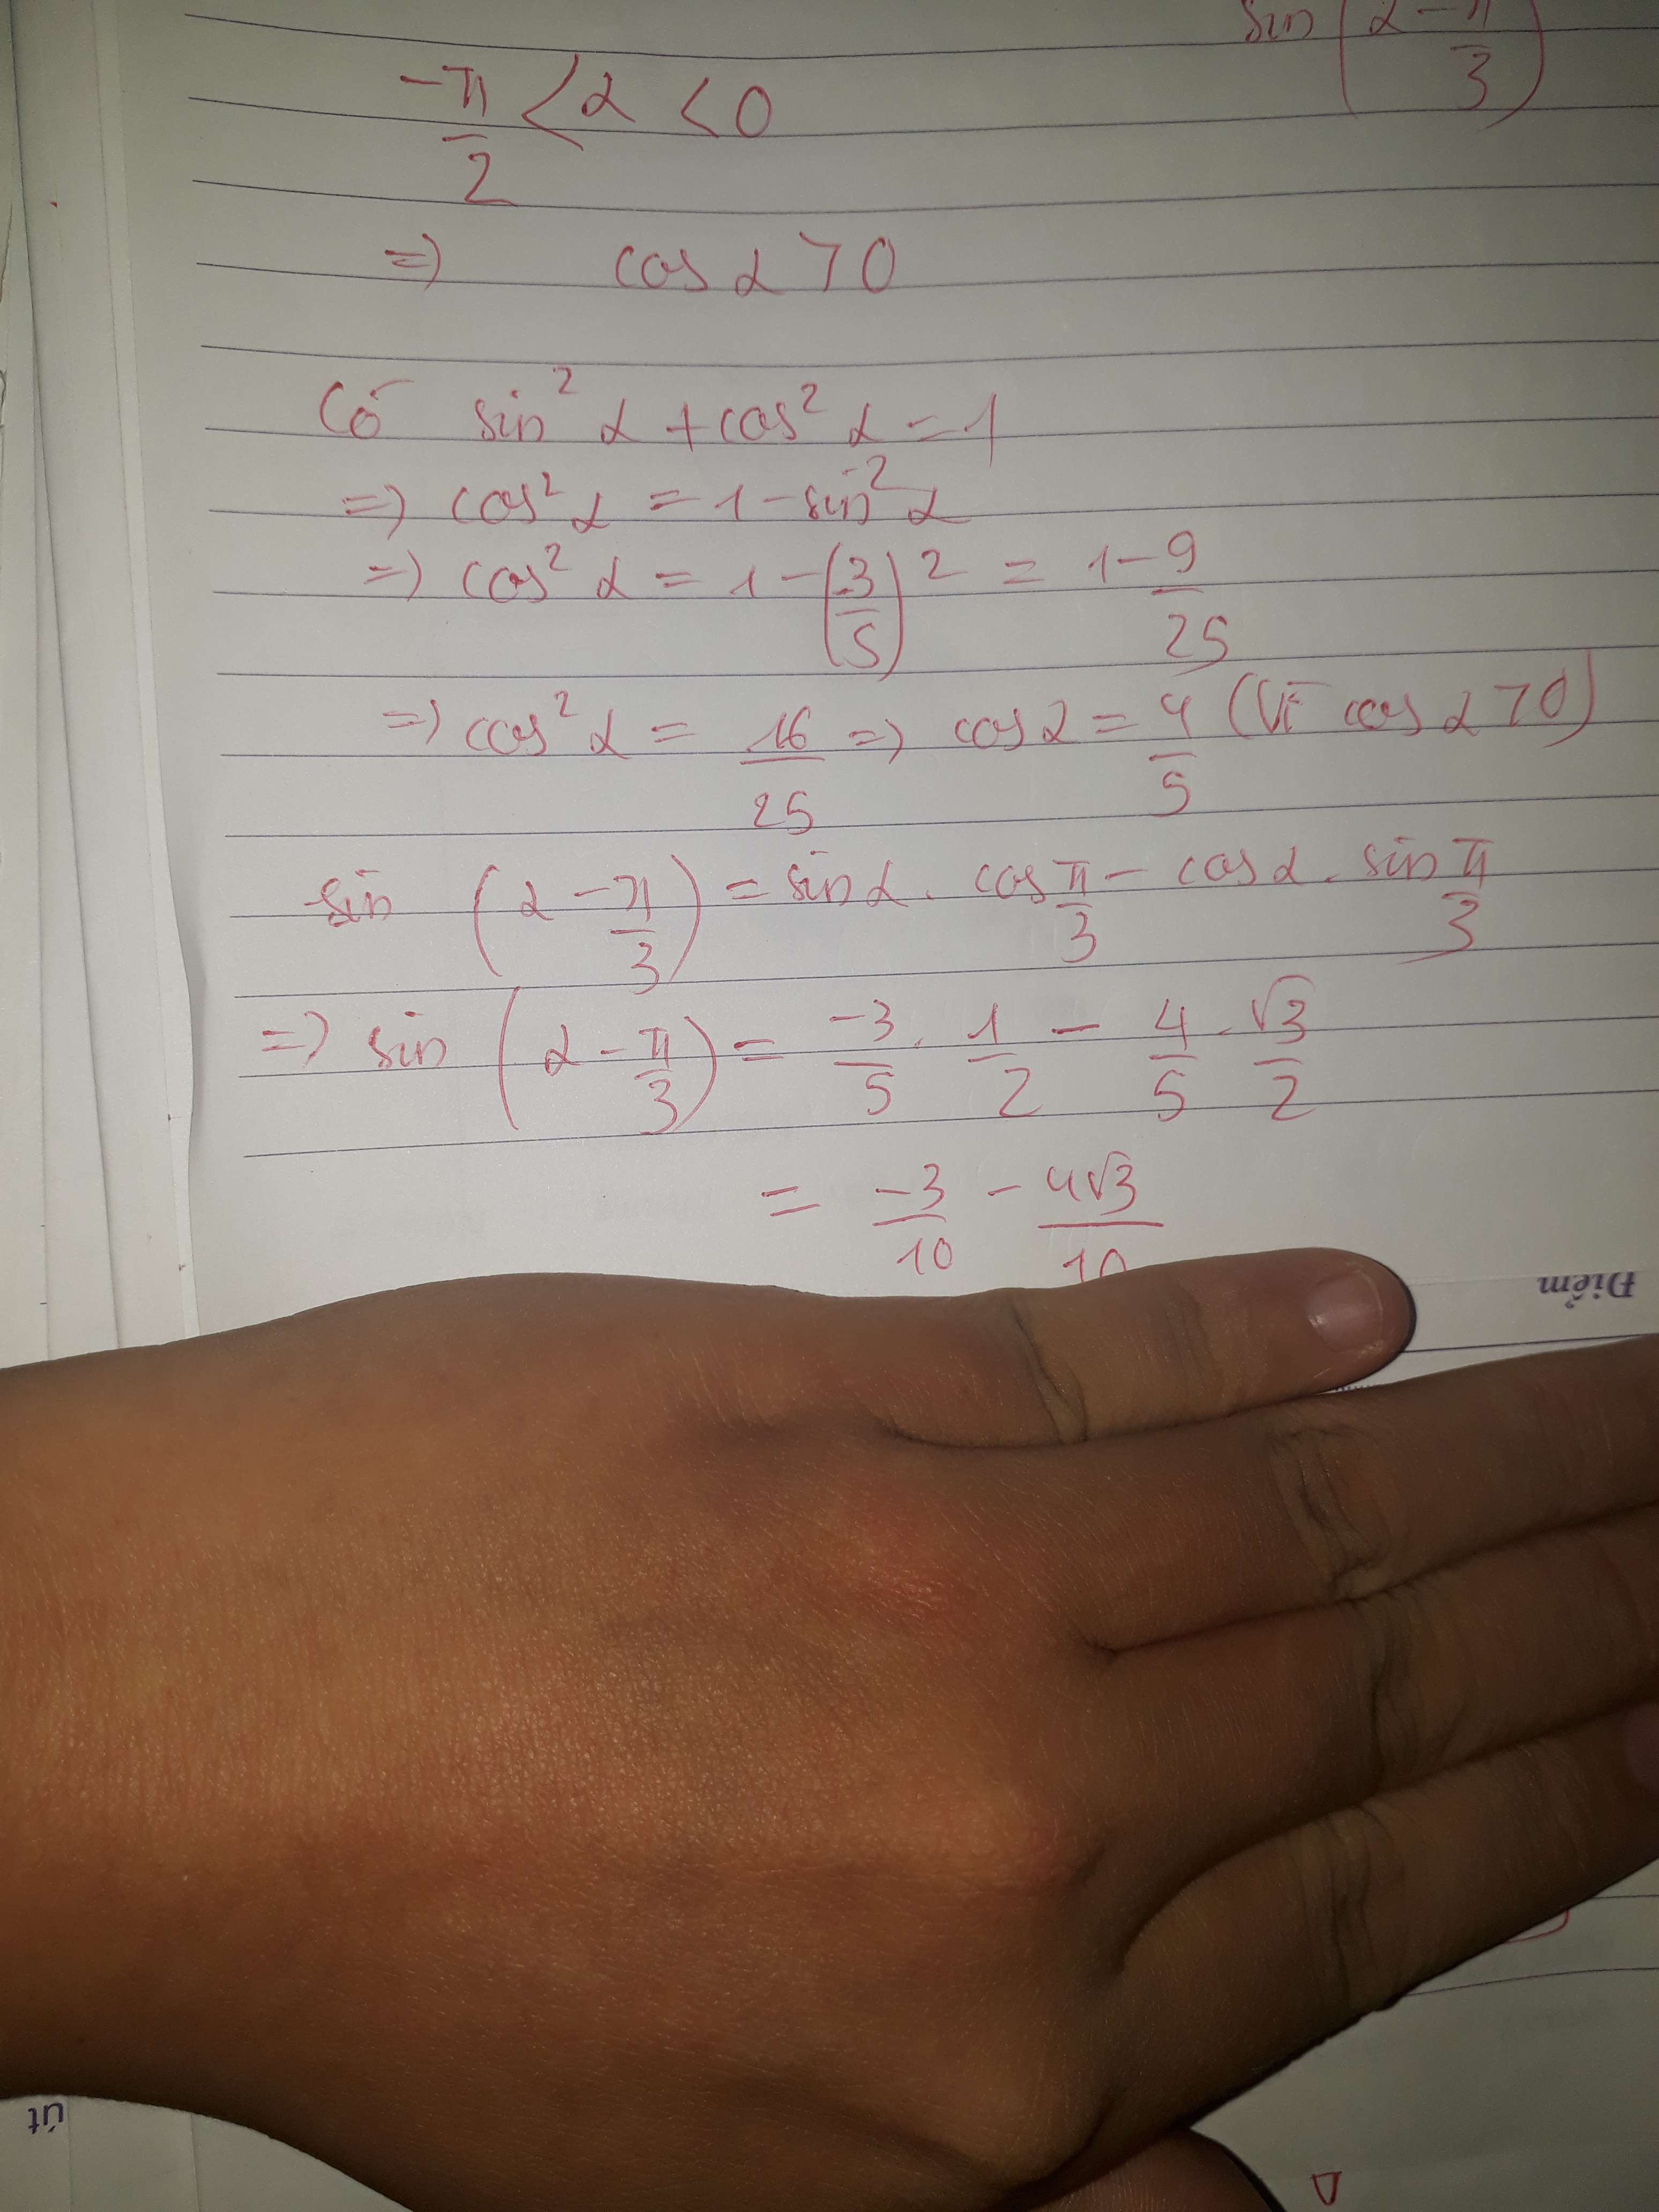 sin (α - π/3)
-π/2 < α < 0
=> cos α > 0
Có sin² α + cos² α = 1
=> cos² α = 1 - sin² α
=> cos² α = 1 - (3/5)² = 1 - 9/25
=> cos² α = 16/25 => cos α = 4/5 (Vì cos α > 0)
sin (α - π/3) = sin α . cos π/3 - cos α . sin π/3
=> sin (α - π/3) = -3/5 . 1/2 - 4/5 . √3/2
= -3/10 - 4√3/10
Điểm
út